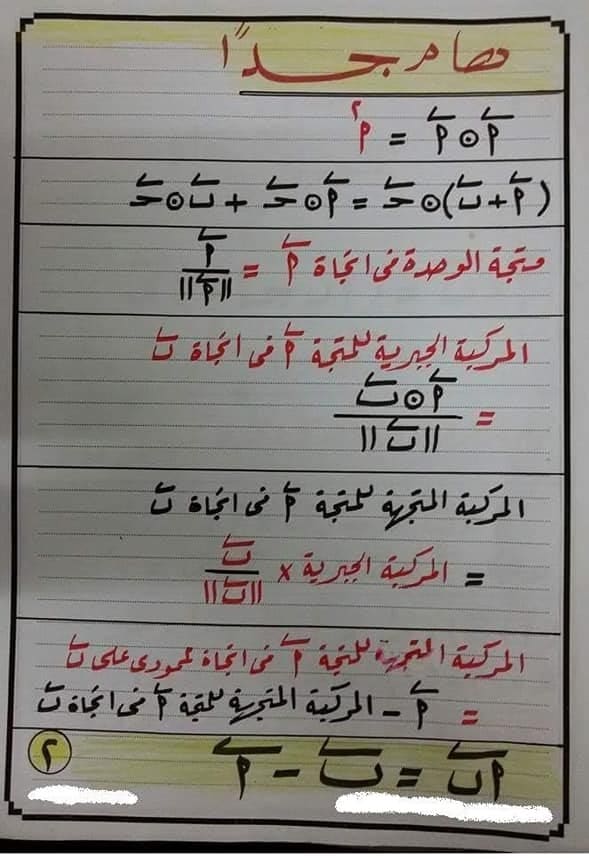 هام جدًا
أَ⃖ ⊙ أَ⃖ = أ٢
(أ⃖ + ب⃖) ⊙ حـ⃖ = أ⃖ ⊙ حـ⃖ + ب⃖ ⊙ حـ⃖
متجة الوحدة فى اتجاة أ⃖ = أ⃖ / ||أ⃖||
المركبة الجبرية للمتجة أ⃖ فى اتجاة ب⃖
= أ⃖ ⊙ ب⃖ / ||ب⃖||
المركبة المتجهة للمتجة أ⃖ فى اتجاة ب⃖
= المركبة الجبرية × ب⃖ / ||ب⃖||
المركبة المتجهة للمتجة أ⃖ فى اتجاة عمودى على ب⃖
= أ⃖ - المركبة المتجهة للمتجة أ⃖ فى اتجاة ب⃖
أب⃖ = ب⃖ - أ⃖
٢